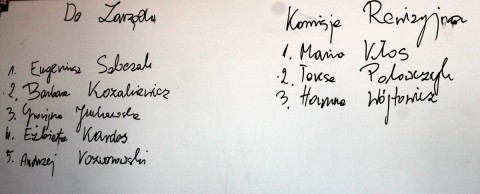 Do Zarządu
1. Eugeniusz Sobczak
2. Barbara Kozakiewicz
3. Grażyna Juchowska
4. Elżbieta Kardas
5. Andrzej Voronowski
Komisje Rewizyjna
1. Maria Kłos
2. Teresa Polowczyk
3. Hanna Wójtowicz